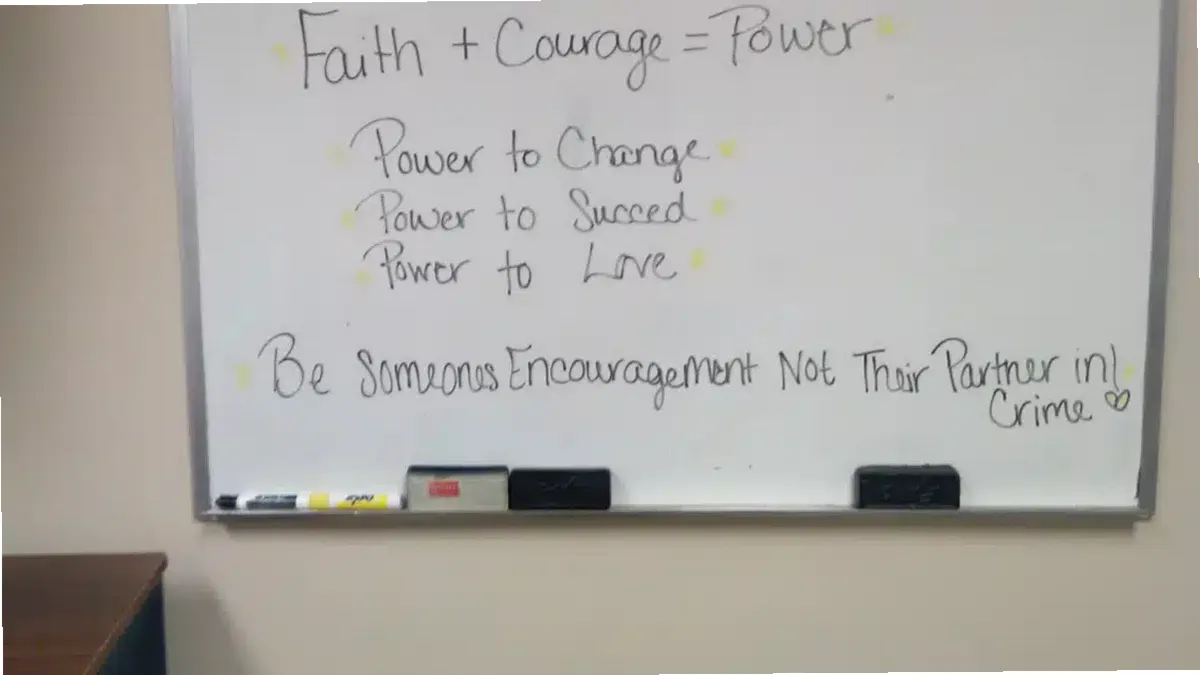 Faith + Courage = Power
Power to Change
Power to Succed
Power to Love
Be Someones Encouragement Not Their Partner in!
Crime
expo